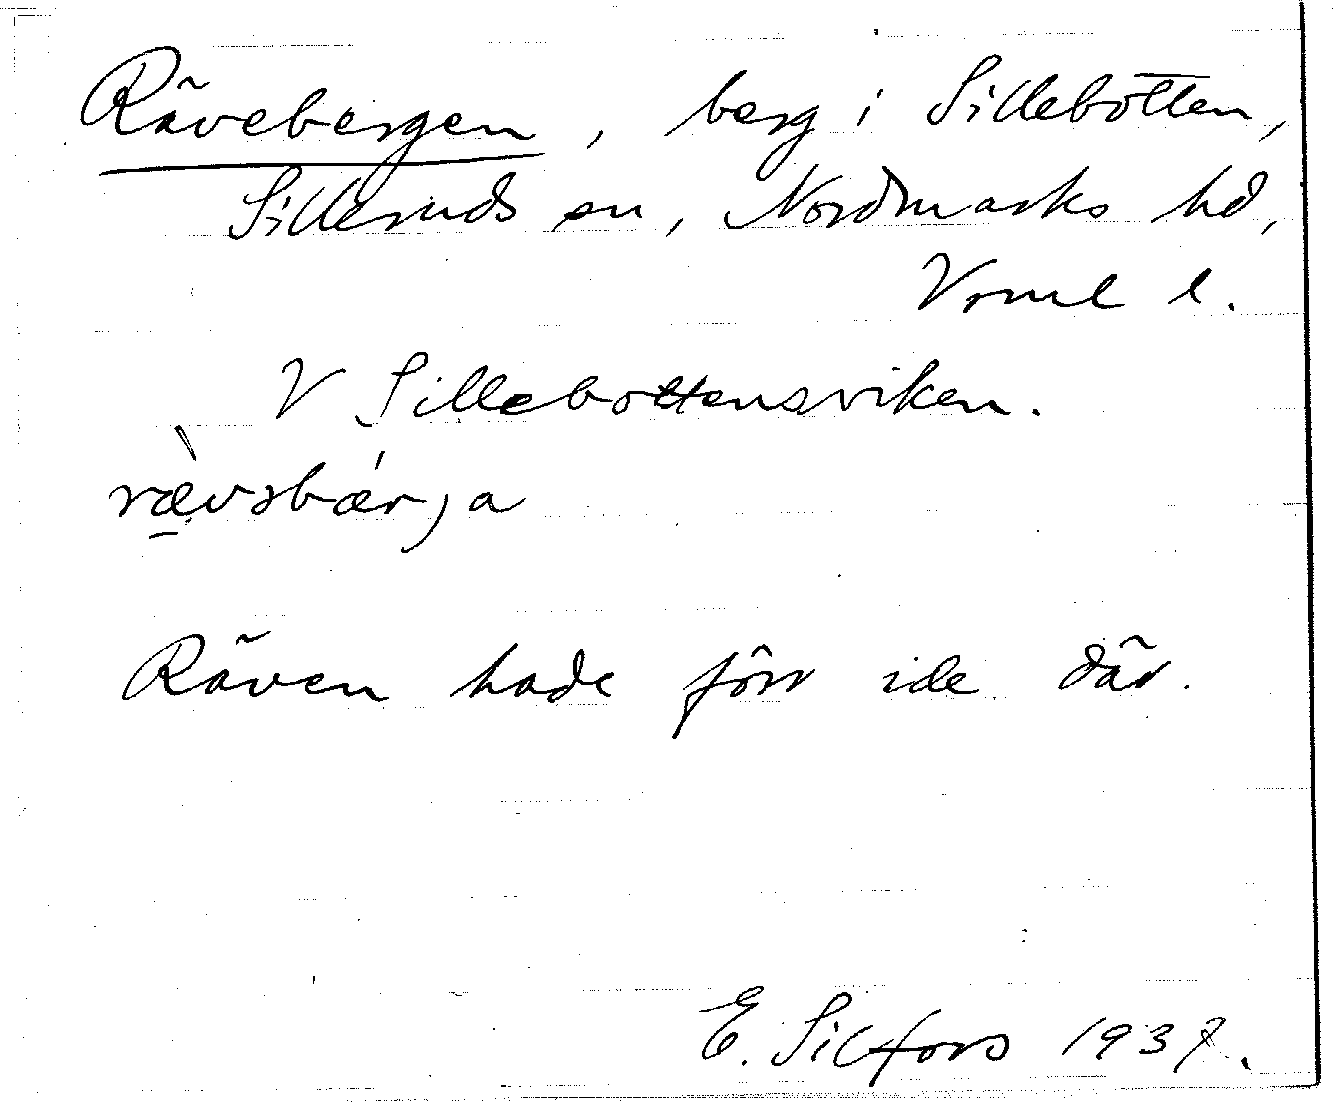 Rävebergen, berg i Sillebotten,
Silleruds sn, Nordmarks hd,
Vrml l.
V Sillebottensviken.
ræ̀vsbǽrja
Räven hade förr ide där.
E. Silfors 1937.